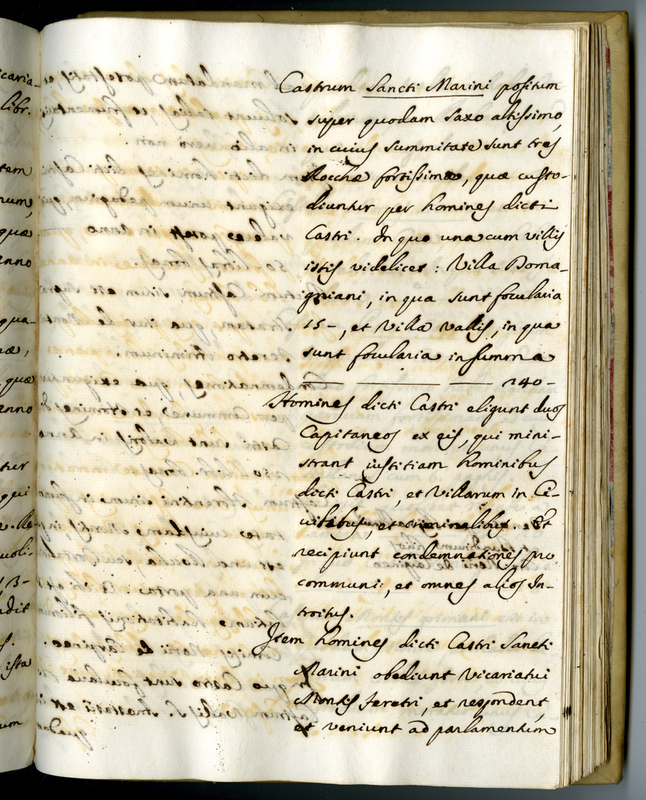 Castrum Sancti Marini positum
super quodam saxo altissimo,
in cuius summitate sunt tres
Rocchæ fortissimæ, quæ custo-
diuntur per homines dicti
Castri. In quo una cum villis
istis videlicet: Villa Doma-
gniani, in qua sunt focularia
15-, et Villa Vallis, in qua
sunt focularia in summa
240-
Homines dicti Castri eligunt duos
Capitaneos ex eis, qui mini-
strant iustitiam hominibus
dicti Castri, et Villarum in Ci-
vilibus, et criminalibus. Et
recipiunt condemnationes pro
communi, et omnes alios In-
troitus.
Item homines dicti Castri Sancti
Marini obediunt Vicariatui
Montis Feretri, et respondent,
et veniunt ad parlamentum